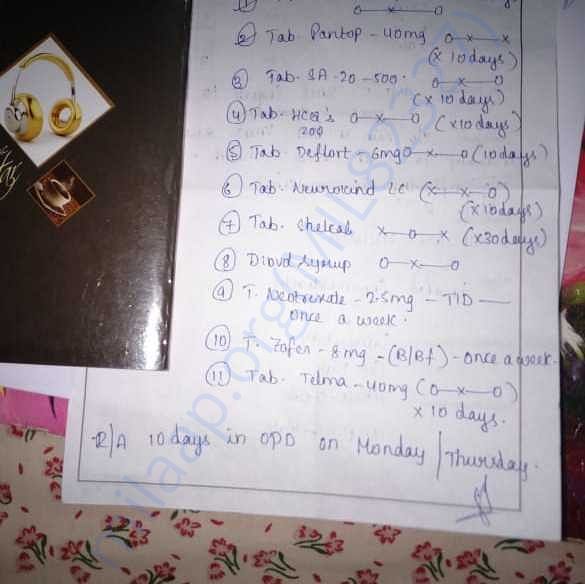 ① 
o-x-o
② Tab. Pantop - 40mg o-x-x
(x 10 days)
③ Tab. SA-20-500. o-x-o
(x 10 days)
④ Tab. HCQ's o-x-o (x10 days)
200
⑤ Tab. Deflort 6mg o-x-o (10 days)
⑥ Tab. Neurokind LC (x-x-o)
(x10 days)
⑦ Tab. Shelcal x-o-x (x30 days)
⑧ Diovd Syrup o-x-o
⑨ T. Neotrexate - 2.5mg - TID —
once a week.
⑩ T. Zofer - 8mg - (B/Bf) - once a week.
⑪ Tab. Telma - 40mg (o-x-o)
x 10 days.
R/A 10 days in OPD on Monday / Thursday.
milaap.org(MIL823327)